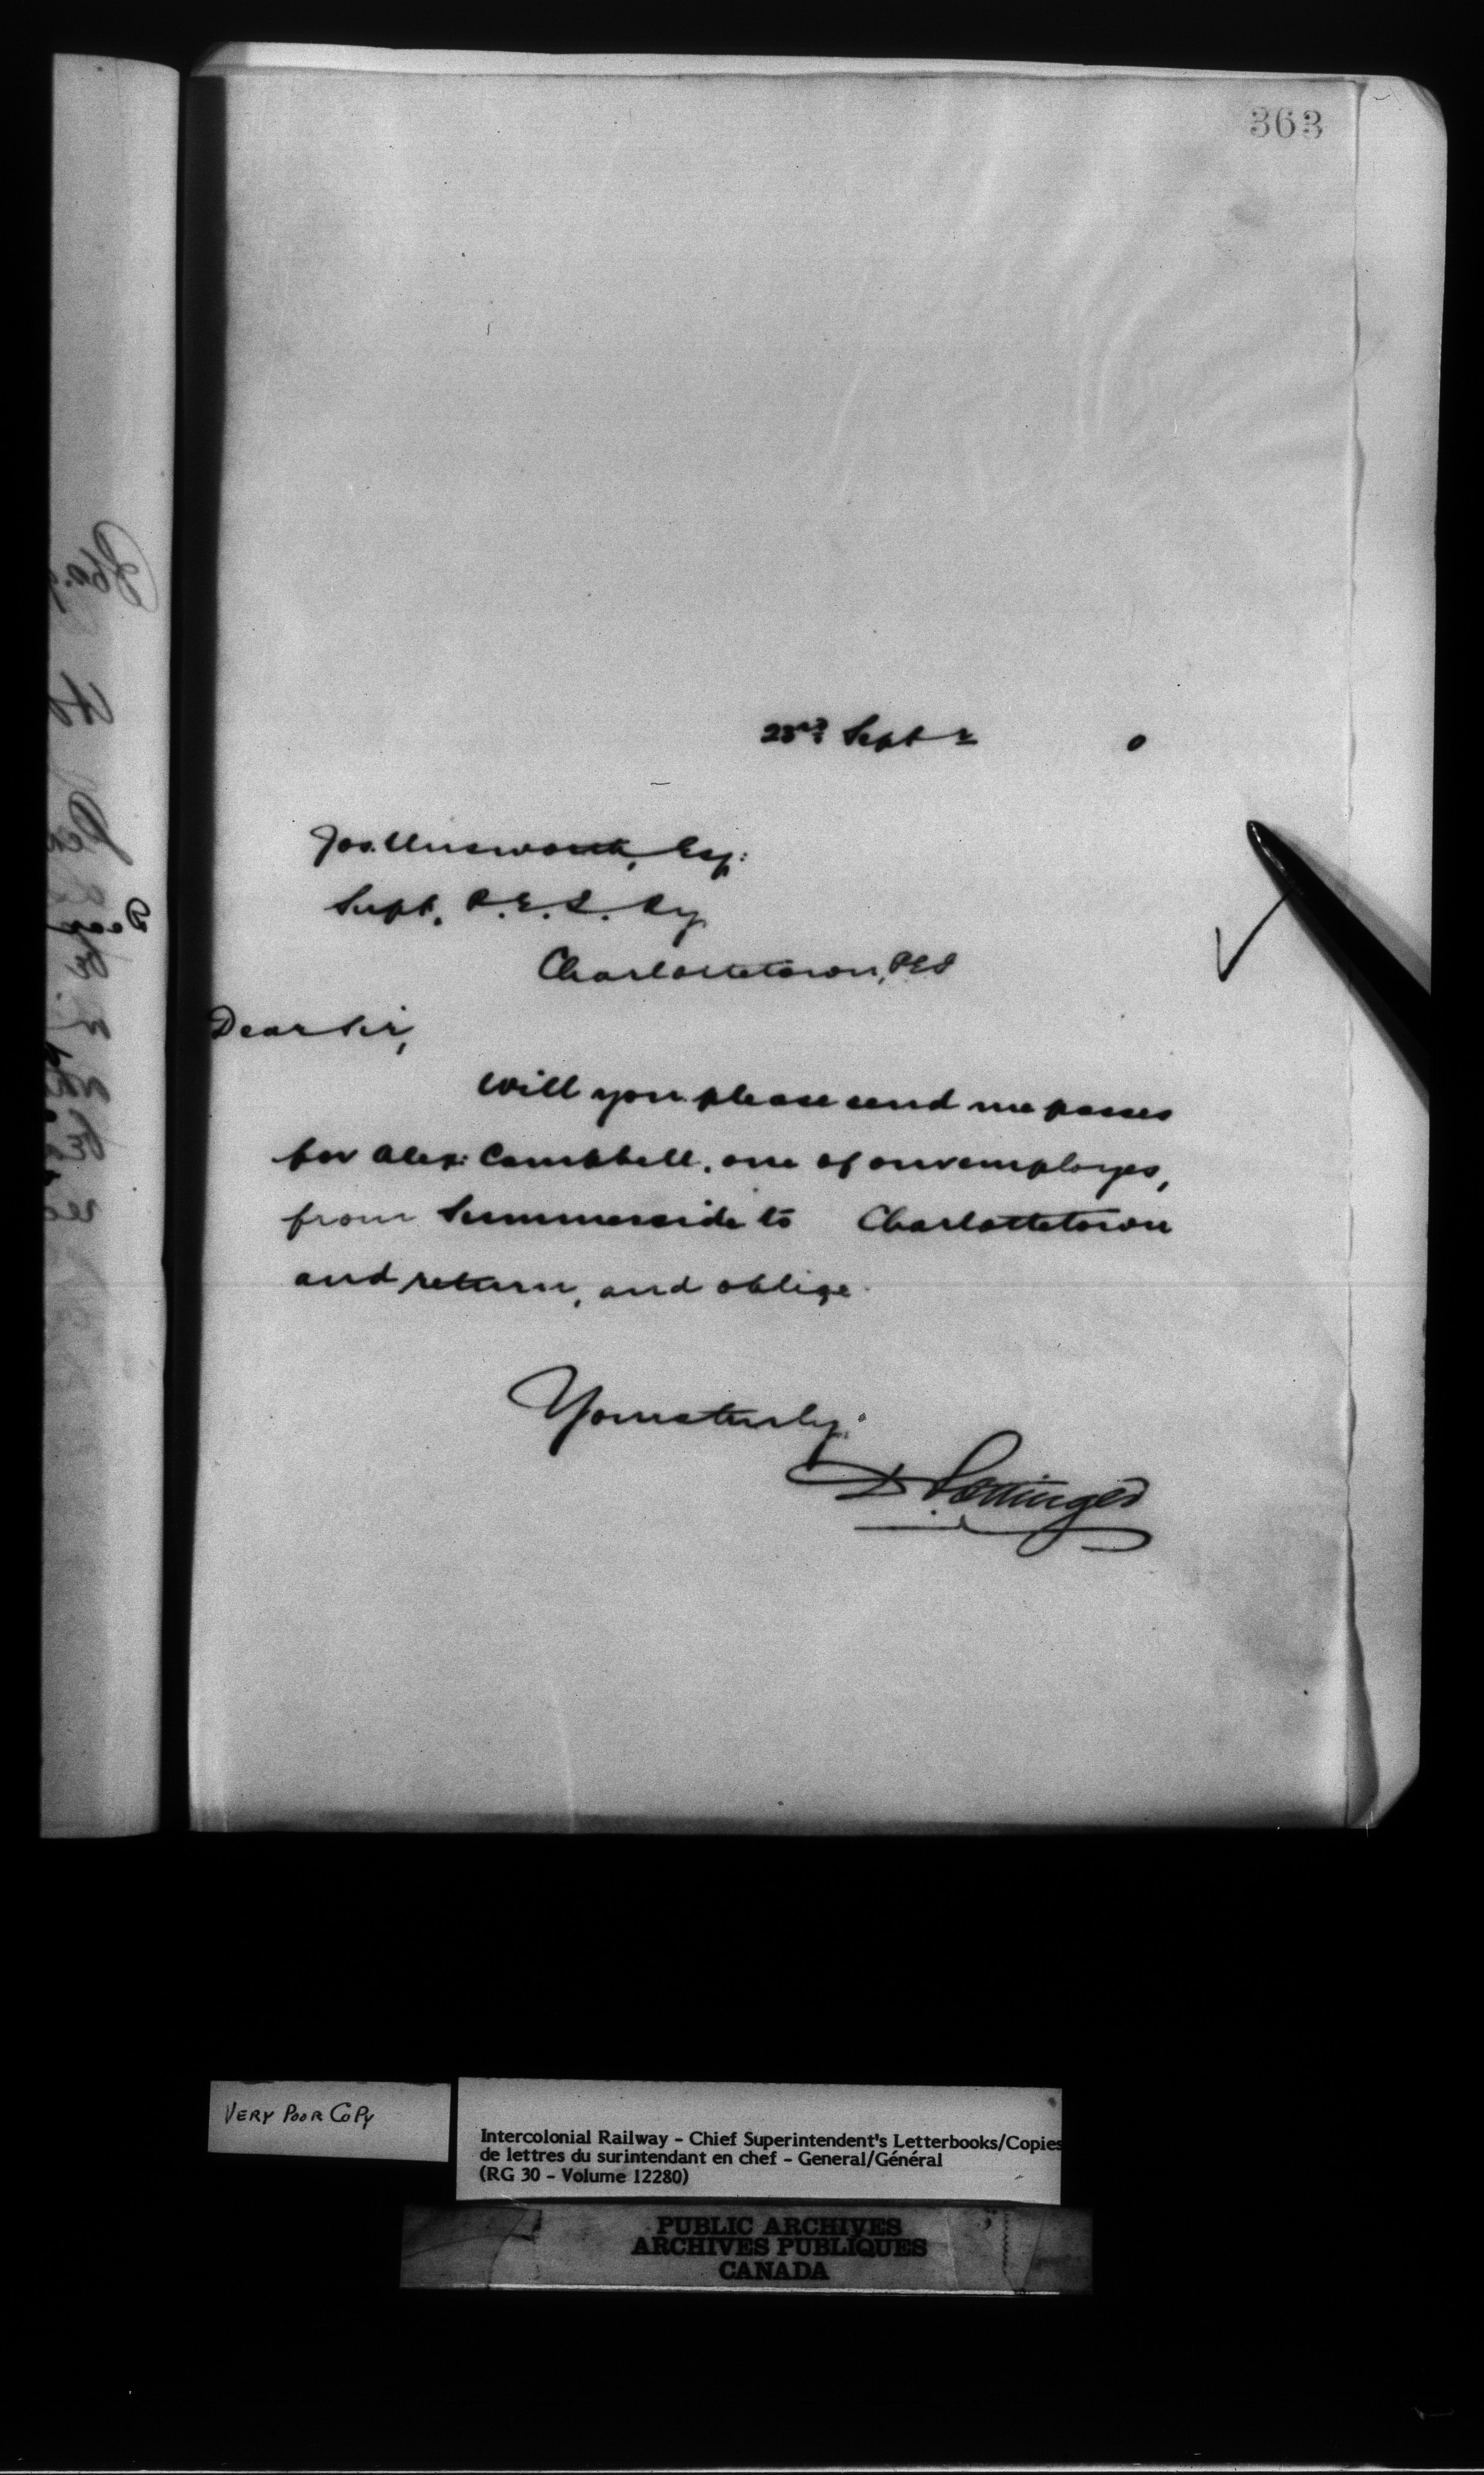 363
23rd Sept r 0
Jos. Unsworth, Esq:
Supt. P.E.I. Ry
Charlottetown, PEI
Dear Sir,
Will you please send me passes
for Alex: Campbell, one of our employes,
from Summerside to Charlottetown
and return, and oblige.
Yours truly:
D. Pottinger
VERY POOR COPY
Intercolonial Railway - Chief Superintendent's Letterbooks/Copies
de lettres du surintendant en chef - General/Général
(RG 30 - Volume 12280)
PUBLIC ARCHIVES
ARCHIVES PUBLIQUES
CANADA